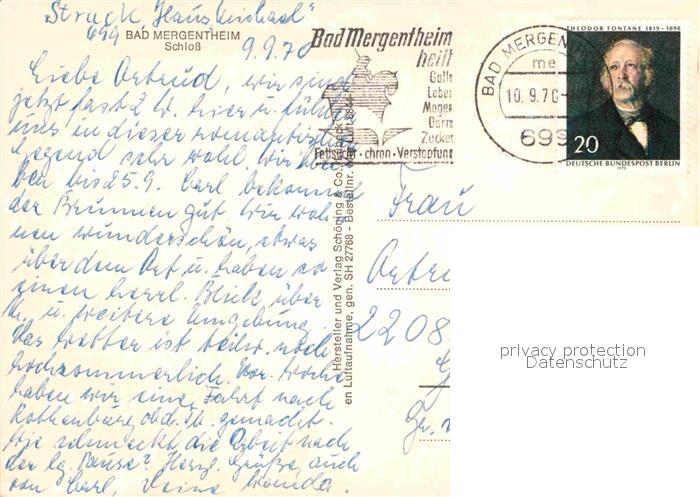 Struck, "Haus Rimbach"
699 BAD MERGENTHEIM
Schloß
9.9.70
Liebe Ortrud, wir sind
jetzt fast 2 W. hier u. fühlen
uns in dieser romantischen
Gegend sehr wohl. Wir blei-
ben bis 25.9. Carl bekommt
der Brunnen gut. Wir woh-
nen wunderschön, etwas
über dem Ort u. haben so
einen herrl. Blick über
u. weitere Umgebung.
Das Wetter ist teilw. noch
hochsommerlich. Vor. Woche
haben wir eine Fahrt nach
Rothenburg ob d. Tb. gemacht.
Wie schmeckt die Arbeit nach
der lg. Pause? Herzl. Grüße, auch
von Carl, Deine Wanda.
Hersteller und Verlag Schöning & Co.
en Luftaufnahme, gen. SH 27768 - Bestellnr.
Bad Mergentheim
heilt
Galle
Leber
Magen
Därm
Zucker
Fettsucht · chron · Verstopfung
BAD MERGENTH
me
10.9.70
699
THEODOR FONTANE 1819 - 1898
20
DEUTSCHE BUNDESPOST BERLIN
1970
Frau
Ortru
2208
privacy protection
Datenschutz